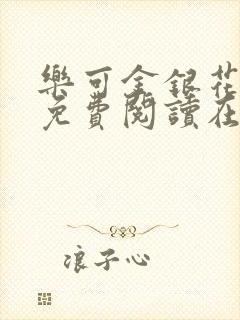 樂可金銀花
免費閱讀在
浪子心